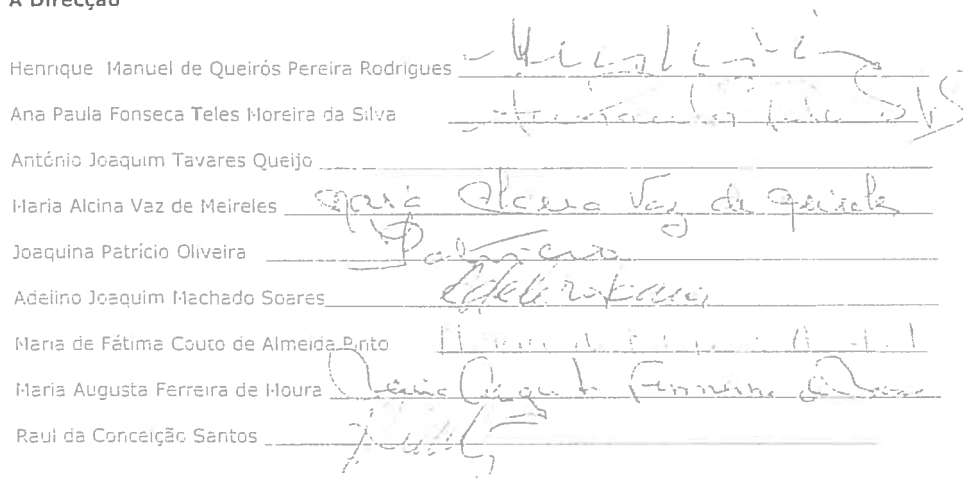 A Direcção
Henrique Manuel de Queirós Pereira Rodrigues
Ana Paula Fonseca Teles Moreira da Silva
António Joaquim Tavares Queijo
Maria Alcina Vaz de Meireles Maria Alcina Vaz de Meireles
Joaquina Patrício Oliveira Patrício
Adelino Joaquim Machado Soares
Maria de Fátima Couto de Almeida Pinto
Maria Augusta Ferreira de Moura Maria Augusta Ferreira de Moura
Raul da Conceição Santos